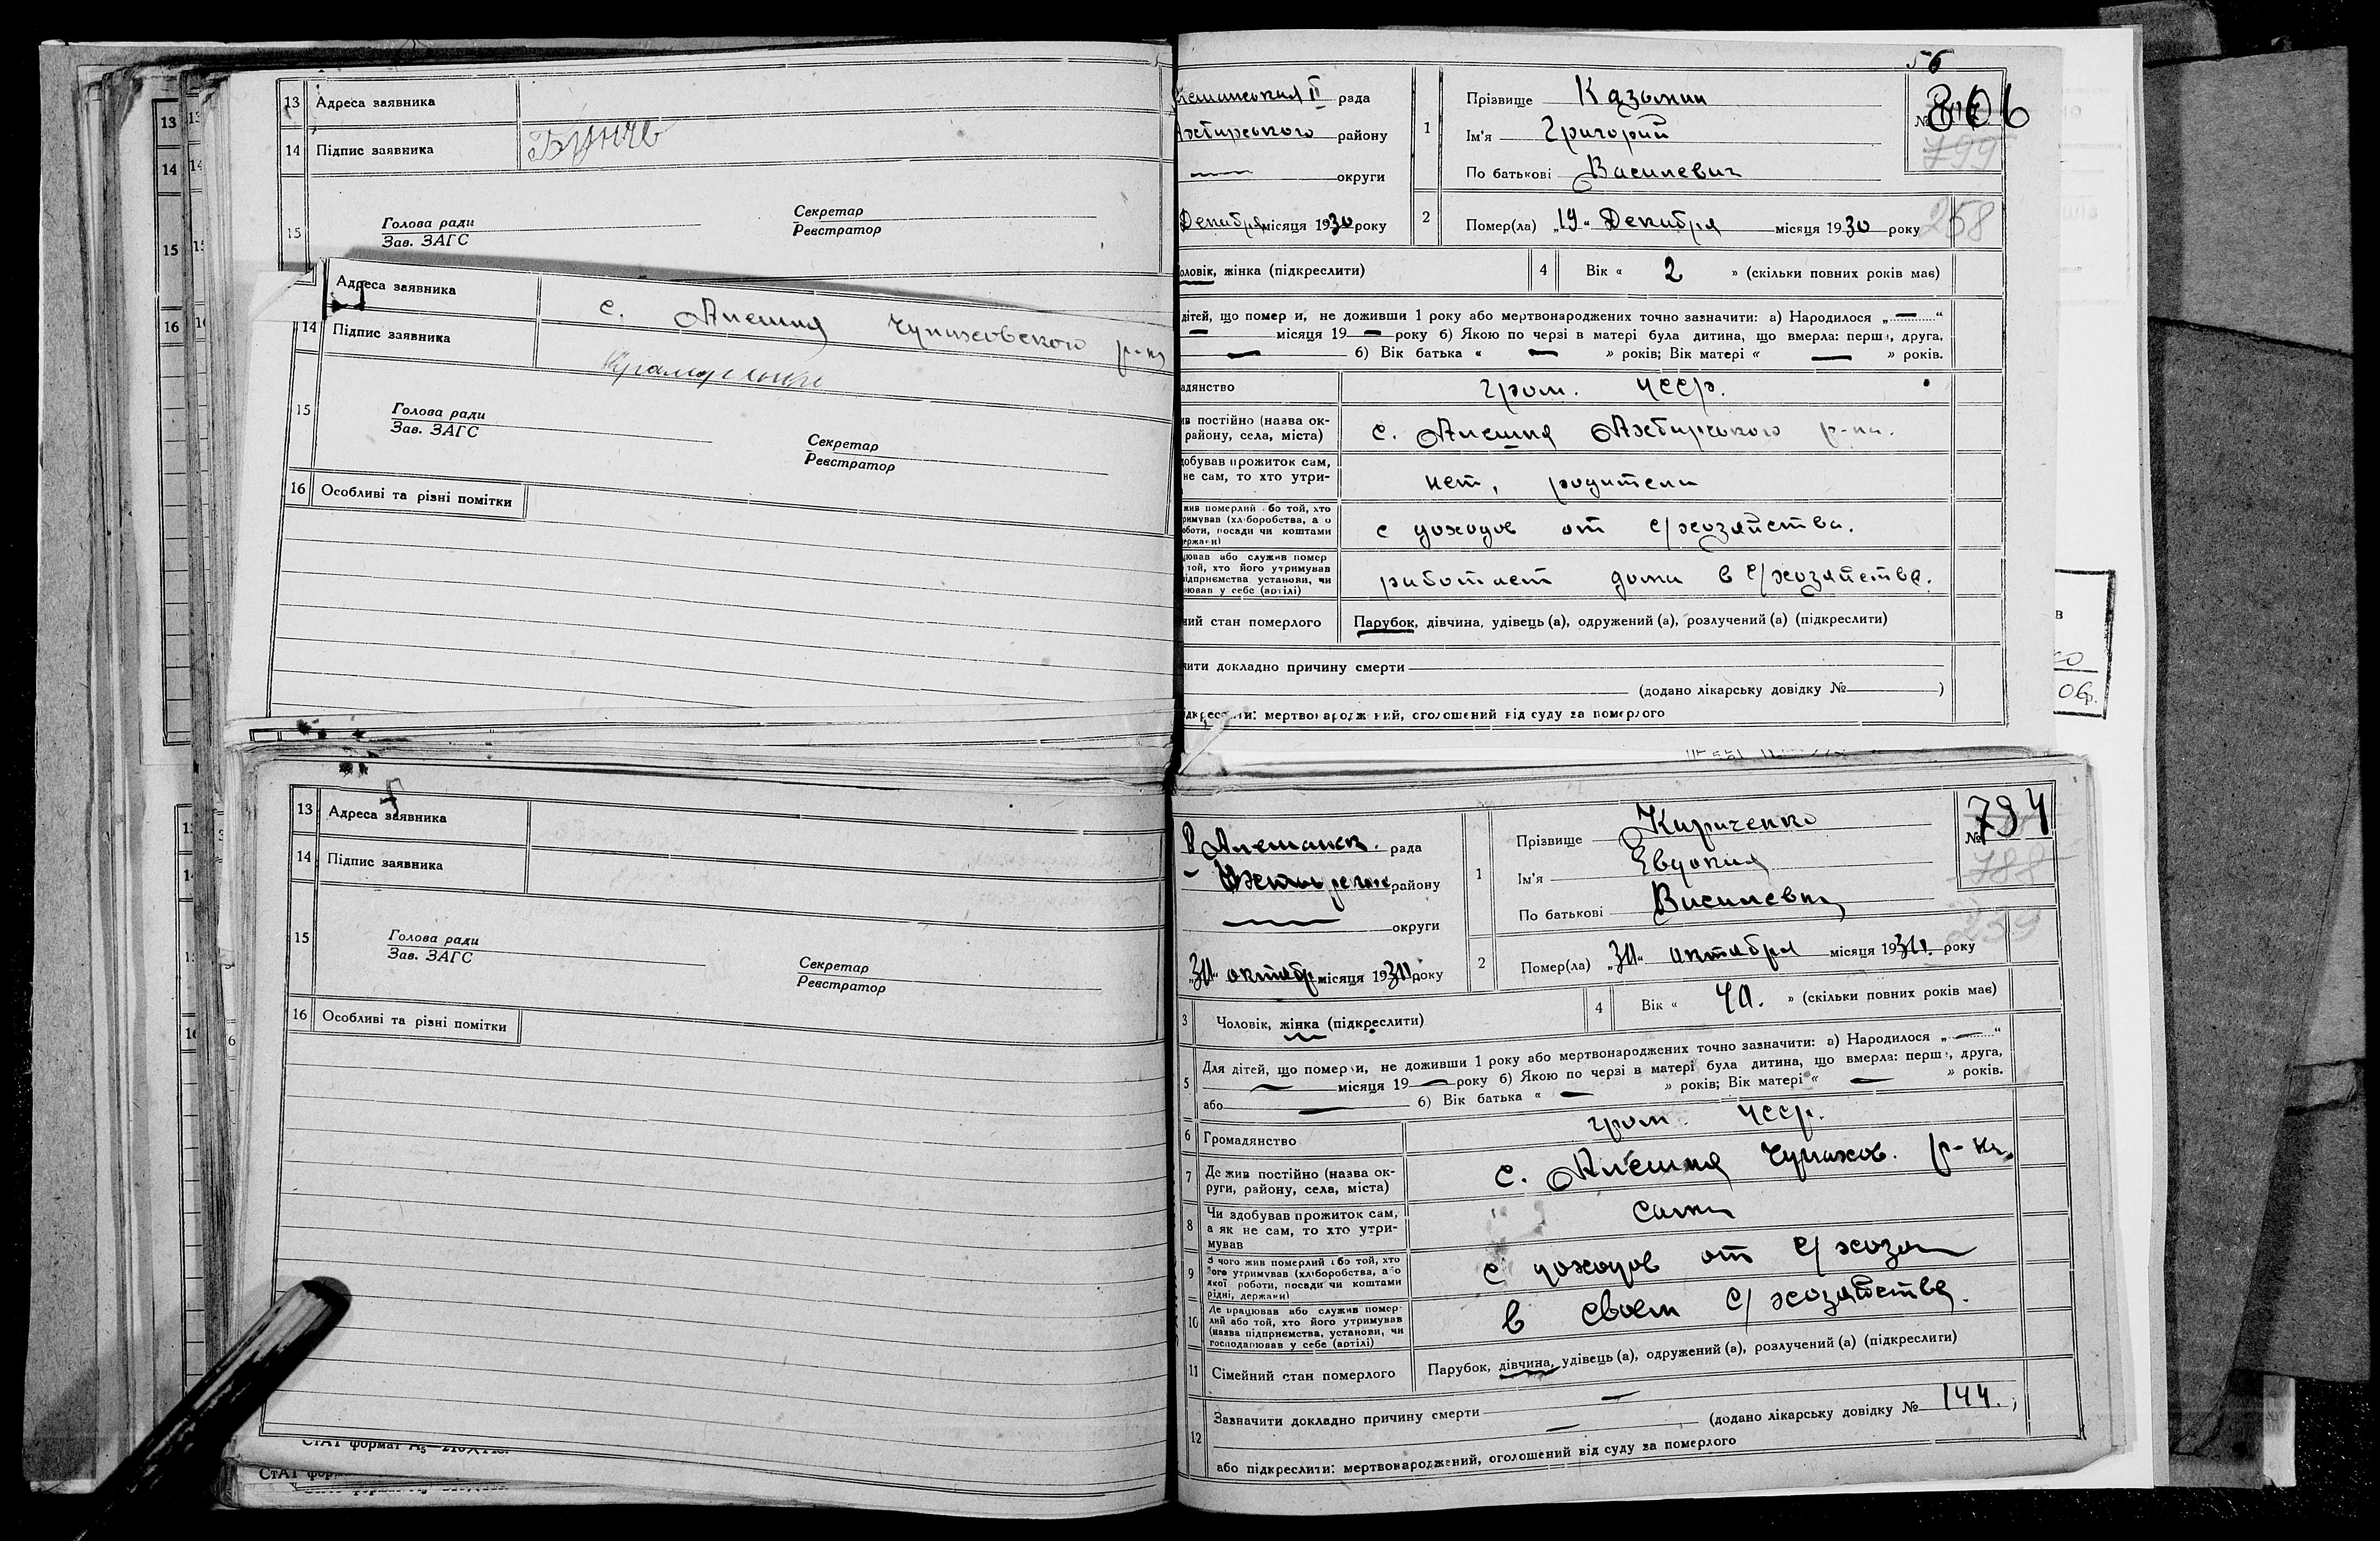 13 Адреса заявника
14 Підпис заявника
15 Голова ради
Зав. ЗАГС
Секретар
Реєстратор
Адреса заявника с. Алешня Чупаховского р-на
14 Підпис заявника
15 Голова ради
Зав. ЗАГС
Секретар
Реєстратор
16 Особливі та різні помітки
13 Адреса заявника
14 Підпис заявника
15 Голова ради
Зав. ЗАГС
Секретар
Реєстратор
16 Особливі та різні помітки
56
II рада
району
округи
Декабря місяця 1930 року
1 Прізвище Казьмин
Ім'я Григорий
По батькові Василевич
№ 806
799
2 Помер(ла) „19“ Декабря місяця 1930 року
258
жінка (підкреслити)
4 Вік « 2 » (скільки повних років має)
дітей, що померли, не доживши 1 року або мертвонароджених точно зазначити: а) Народилося „ — “
— місяця 19 — року б) Якою по черзі в матері була дитина, що вмерла: перша, друга,
— б) Вік батька « — » років; Вік матері « — » років.
гром. УССР.
постійно (назва ок-
району, села, міста) с. Алешня Ахтирського р-на.
прожиток сам,
не сам, то хто утри-
нет, родители
с доходов от с/хозяйства.
работает дома в с/хозяйстве.
стан померлого Парубок, дівчина, удівець (а), одружений (а), розлучений (а) (підкреслити)
докладно причину смерти
(додано лікарську довідку № )
мертвонароджений, оголошений від суду за померлого
рада
району
округи
„30“ октябр місяця 1930 року
1 Прізвище Кириченко
Ім'я Евдокия
По батькові
№ 794
788
2 Помер(ла) „30“ октября місяця 1930 року
259
3 Чоловік, жінка (підкреслити)
4 Вік « 40. » (скільки повних років має)
5 Для дітей, що померли, не доживши 1 року або мертвонароджених точно зазначити: а) Народилося „ — “
— місяця 19 — року б) Якою по черзі в матері була дитина, що вмерла: перша, друга,
або — б) Вік батька « — » років; Вік матері « — » років.
6 Громадянство гром. УССР.
7 Де жив постійно (назва ок-
руги, району, села, міста) с. Алешня Чупахов. р-на.
8 Чи здобував прожиток сам,
а як не сам, то хто утри-
мував
сама
9 З чого жив померлий або той, хто
його утримував (хліборобства, або
якої роботи, посади чи коштами
рідні, держави)
с доходов от с/хоз
10 Де працював або служив помер-
лий або той, хто його утримував
(назва підприємства, установи, чи
господарював у себе (артілі)
в своем с/хозяйстве.
11 Сімейний стан померлого Парубок, дівчина, удівець (а), одружений (а), розлучений (а) (підкреслити)
12 Зазначити докладно причину смерти —
— (додано лікарську довідку № 144.)
або підкреслити: мертвонароджений, оголошений від суду за померлого